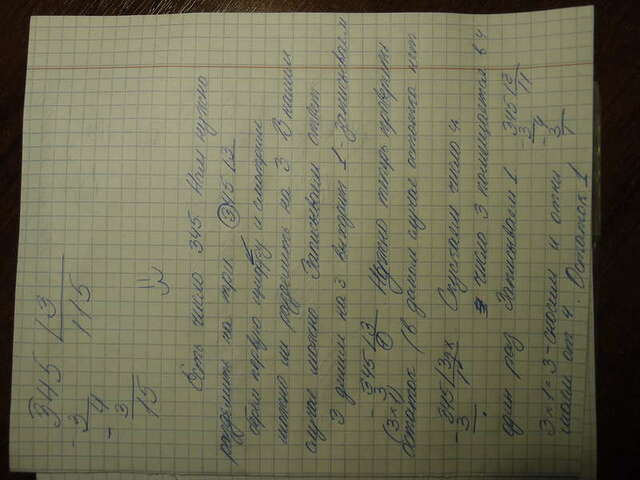 345 | 3
- 3 115
4
- 3
15
Есть число 345. Нам нужно
разделить на три. 345 | 3
берём первую цифру и смотрим
можно ли разделить на 3. В нашем
случае можно. Записываем ответ.
3 делим на 3 выходит 1 - Записываем
- 345 | 3 Нужно теперь проверить
3
(3×1)
остаток (в данном случае остатка нет
- 345 | 3 Спускаем число 4
3
число 3 помещается в 4
один раз Записываем 1 - 345 | 3
3 11
4
- 3
3×1=3 - сносим и отни
маем от 4. Остаток 1